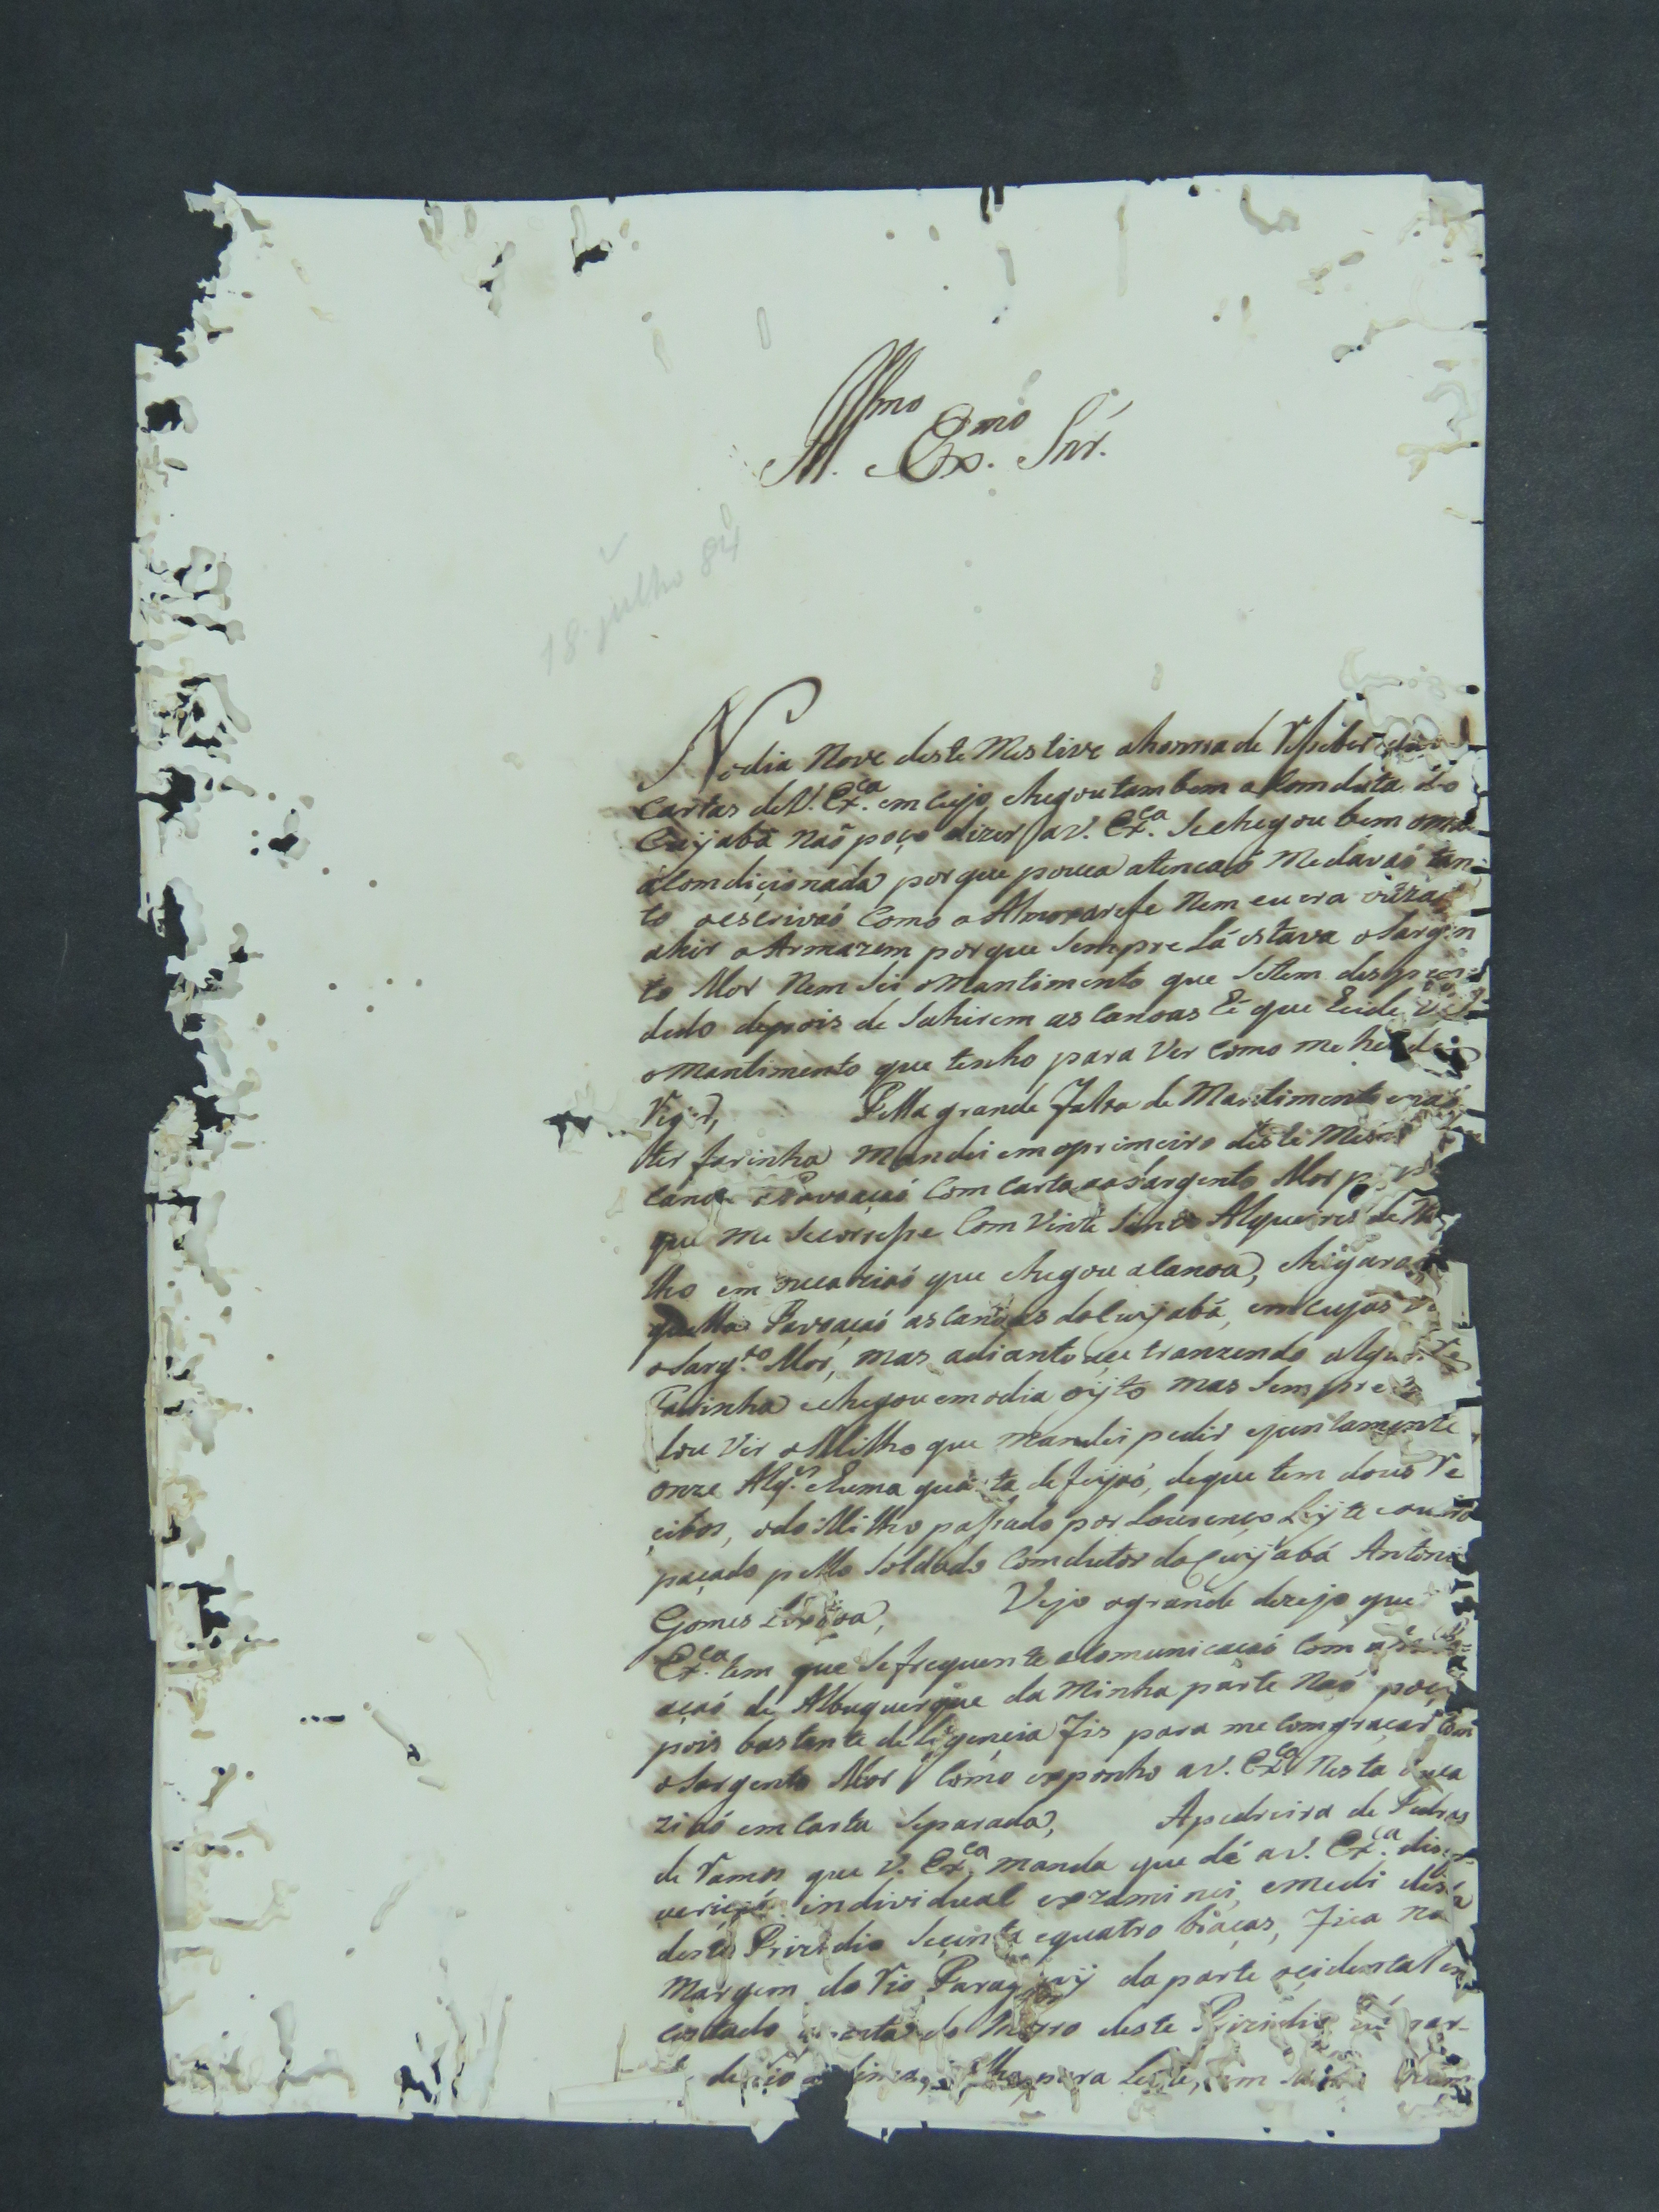 Ill.mo Ex.mo Snr.
18 julho 84
No dia Nove deste Mes tive ahonrra de Resseber duas
Cartas deV. Ex.ca em cujo, chegou tambem a Comduta do
Cuijabá naõ poço dizer aV. Ex.ca Se chegou bem oma
acomdiçionada porque pouca atencaõ Medavaõ tan-
to oescrivaõ Como o Almoxarefe Nem eu era ouza
ahir o Armazem porque Sempre Lá estava oSargen
to Mor Nem Sei oMantimento que Setem despen-
dedo depois de Sahirem as Canoas Eé que Eide
oMantimento que tenho para Ver Como me hei de
Pella grande falta de Mantimento enaõ
ter farinha mandei em oprimeiro deste Mes
Canoa aPovoaçaõ Com Carta aoSargento Mor
que me Secorresse Com Vinte Sinco Alqueires de Mi
lho em oucaziaõ que chegou aCanoa, chegaraõ
quella Povoaçaõ as Canoas doCuijabá, em cujas
oSarg.to Mor, mas adiantouçe tranzendo
farinha echegou em odia oijto mas Sempre
lou Vir oMilho que Mandei pedir ejuntamente
onze Alq.s Euma quarta defeijaõ, deque tem dous Re
çibos, odo Milho passado por Lourenço Leijte eoutro
paçado pello Soldado Comdutor doCuijabá Antonio
Gomes
Vejo ogrande dezejo que
Ex.ca tem que Sefrequente aComunicaçaõ Com
açaõ de Albuquerque da Minha parte Naõ
pois bastante deligencia fis para me Comgraçar Com
oSargento Mor Como exponho aV. Ex.ca Nesta ouca
ziaõ em Carta Separada, Apedreira de Pedras
de Ramos que V. Ex.ca manda que dê aV. Ex.ca
individual exzaminei, emedi
deste Prizidio Secenta equatro braças, fica na
Margem do Rio daparte ocidental en
costado do Morro deste Prizidio
para